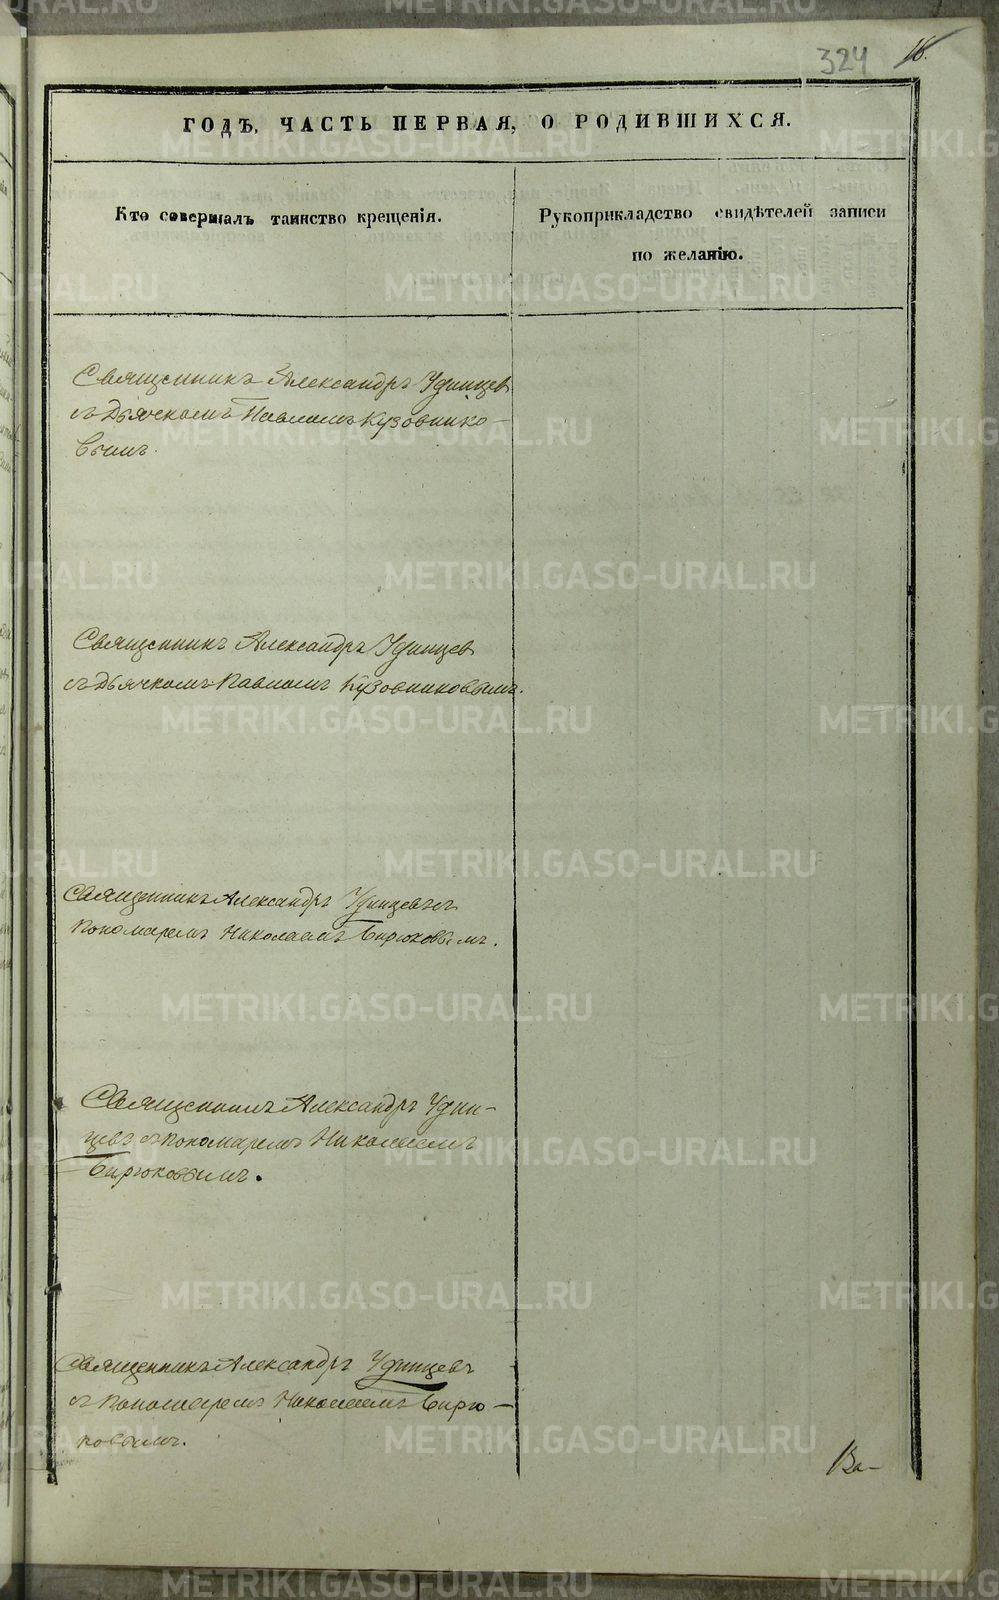 324 16.
ГОДЪ, ЧАСТЬ ПЕРВАЯ, О РОДИВШИХСЯ.
Кто совершалъ таинство крещенія.
Рукоприкладство свидѣтелей записи
по желанію.
Священникъ Александръ Удинцев
съ Дьячкомъ Павломъ Кузовнико-
вымъ.
Священникъ Александръ Удинцев
съ Дьячкомъ Павломъ Кузовниковымъ.
Священникъ Александръ Удинцевъ съ
пономаремъ Николаемъ Бирюковымъ.
Священникъ Александръ Удин-
цевъ съ пономаремъ Николаемъ
Бирюковымъ.
Священникъ Александръ Удинцевъ
съ пономаремъ Николаемъ Бирю-
ковымъ.
METRIKI.GASO-URAL.RU